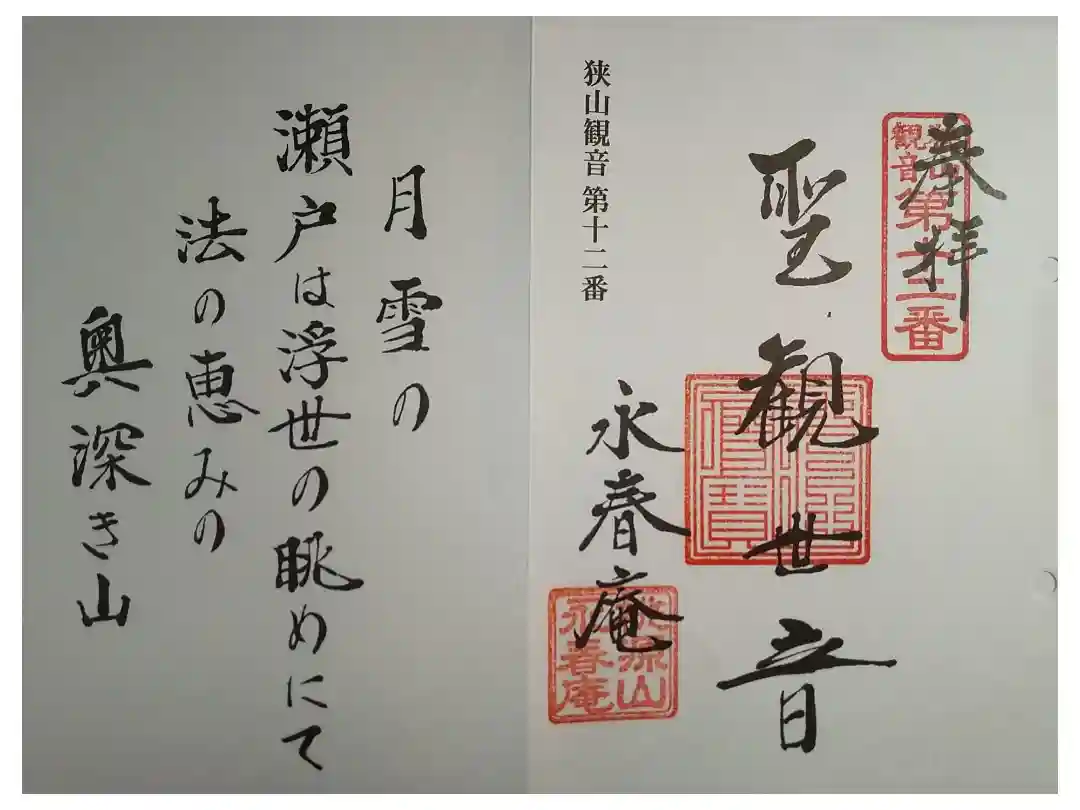 奉拝
狭山
観音
第十二番
聖観世音
仏法僧寶
狭山観音 第十二番
永春庵
桃源山
永春庵
月雪の
瀬戸は浮世の眺めにて
法の恵みの
奥深き山